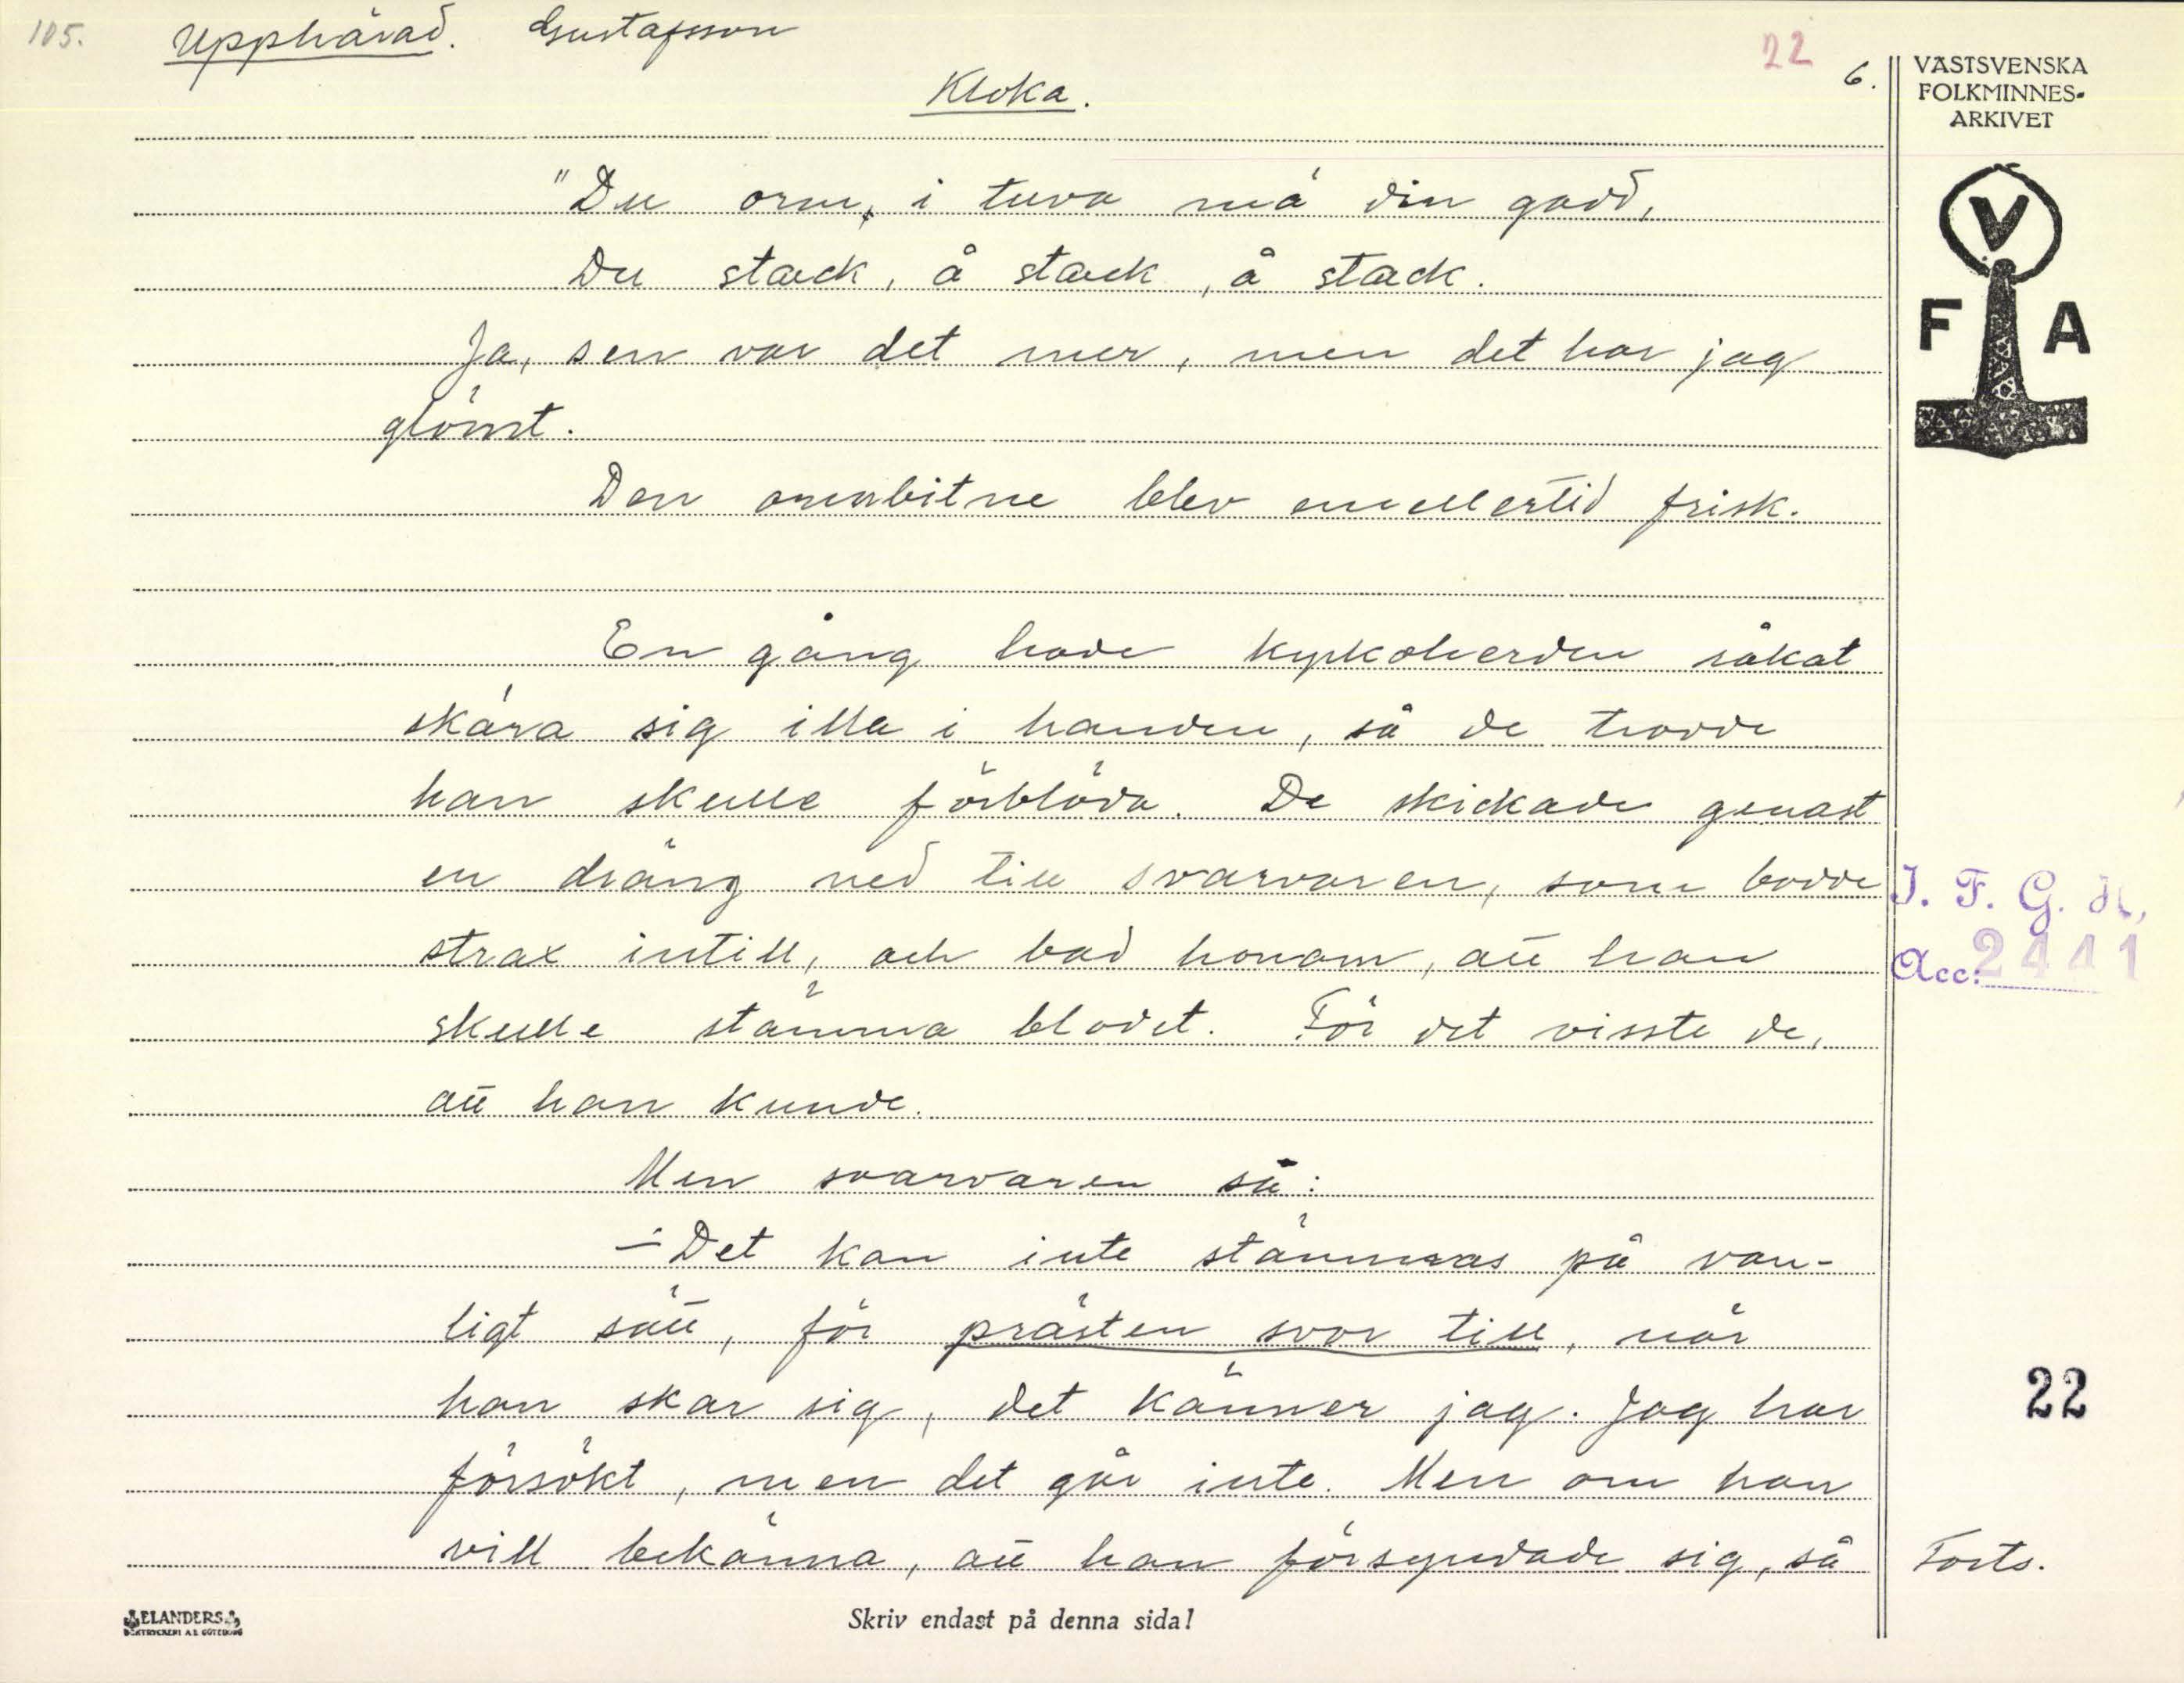 105. Upphärad. Gustafsson 22 6.
Kloka.
VÄSTSVENSKA
FOLKMINNES-
ARKIVET
V
F A
"Du orm, i tuva må din gadd,
Du stack, å stack, å stack.
Ja, sen var det mer, men det har jag
glömt.
Den ormbitne blev emellertid frisk.
En gång hade kyrkoherden råkat
skära sig illa i handen, så de trodde
han skulle förblöda. De skickade genast
en dräng ned till svarvaren, som bodde
strax intill, och bad honom, att han
skulle stämma blodet. För det visste de,
att han kunde.
Men svarvaren sa:
- Det kan inte stämmas på van-
ligt sätt, för prästen svor till, när
han skar sig, det känner jag. Jag har
försökt, men det går inte. Men om han
vill bekänna, att han försyndade sig, så
I. F. G. H.
Acc. 2441
22
Forts.
ELANDERS
BOKTRYCKERI A.B. GÖTEBORG
Skriv endast på denna sida!